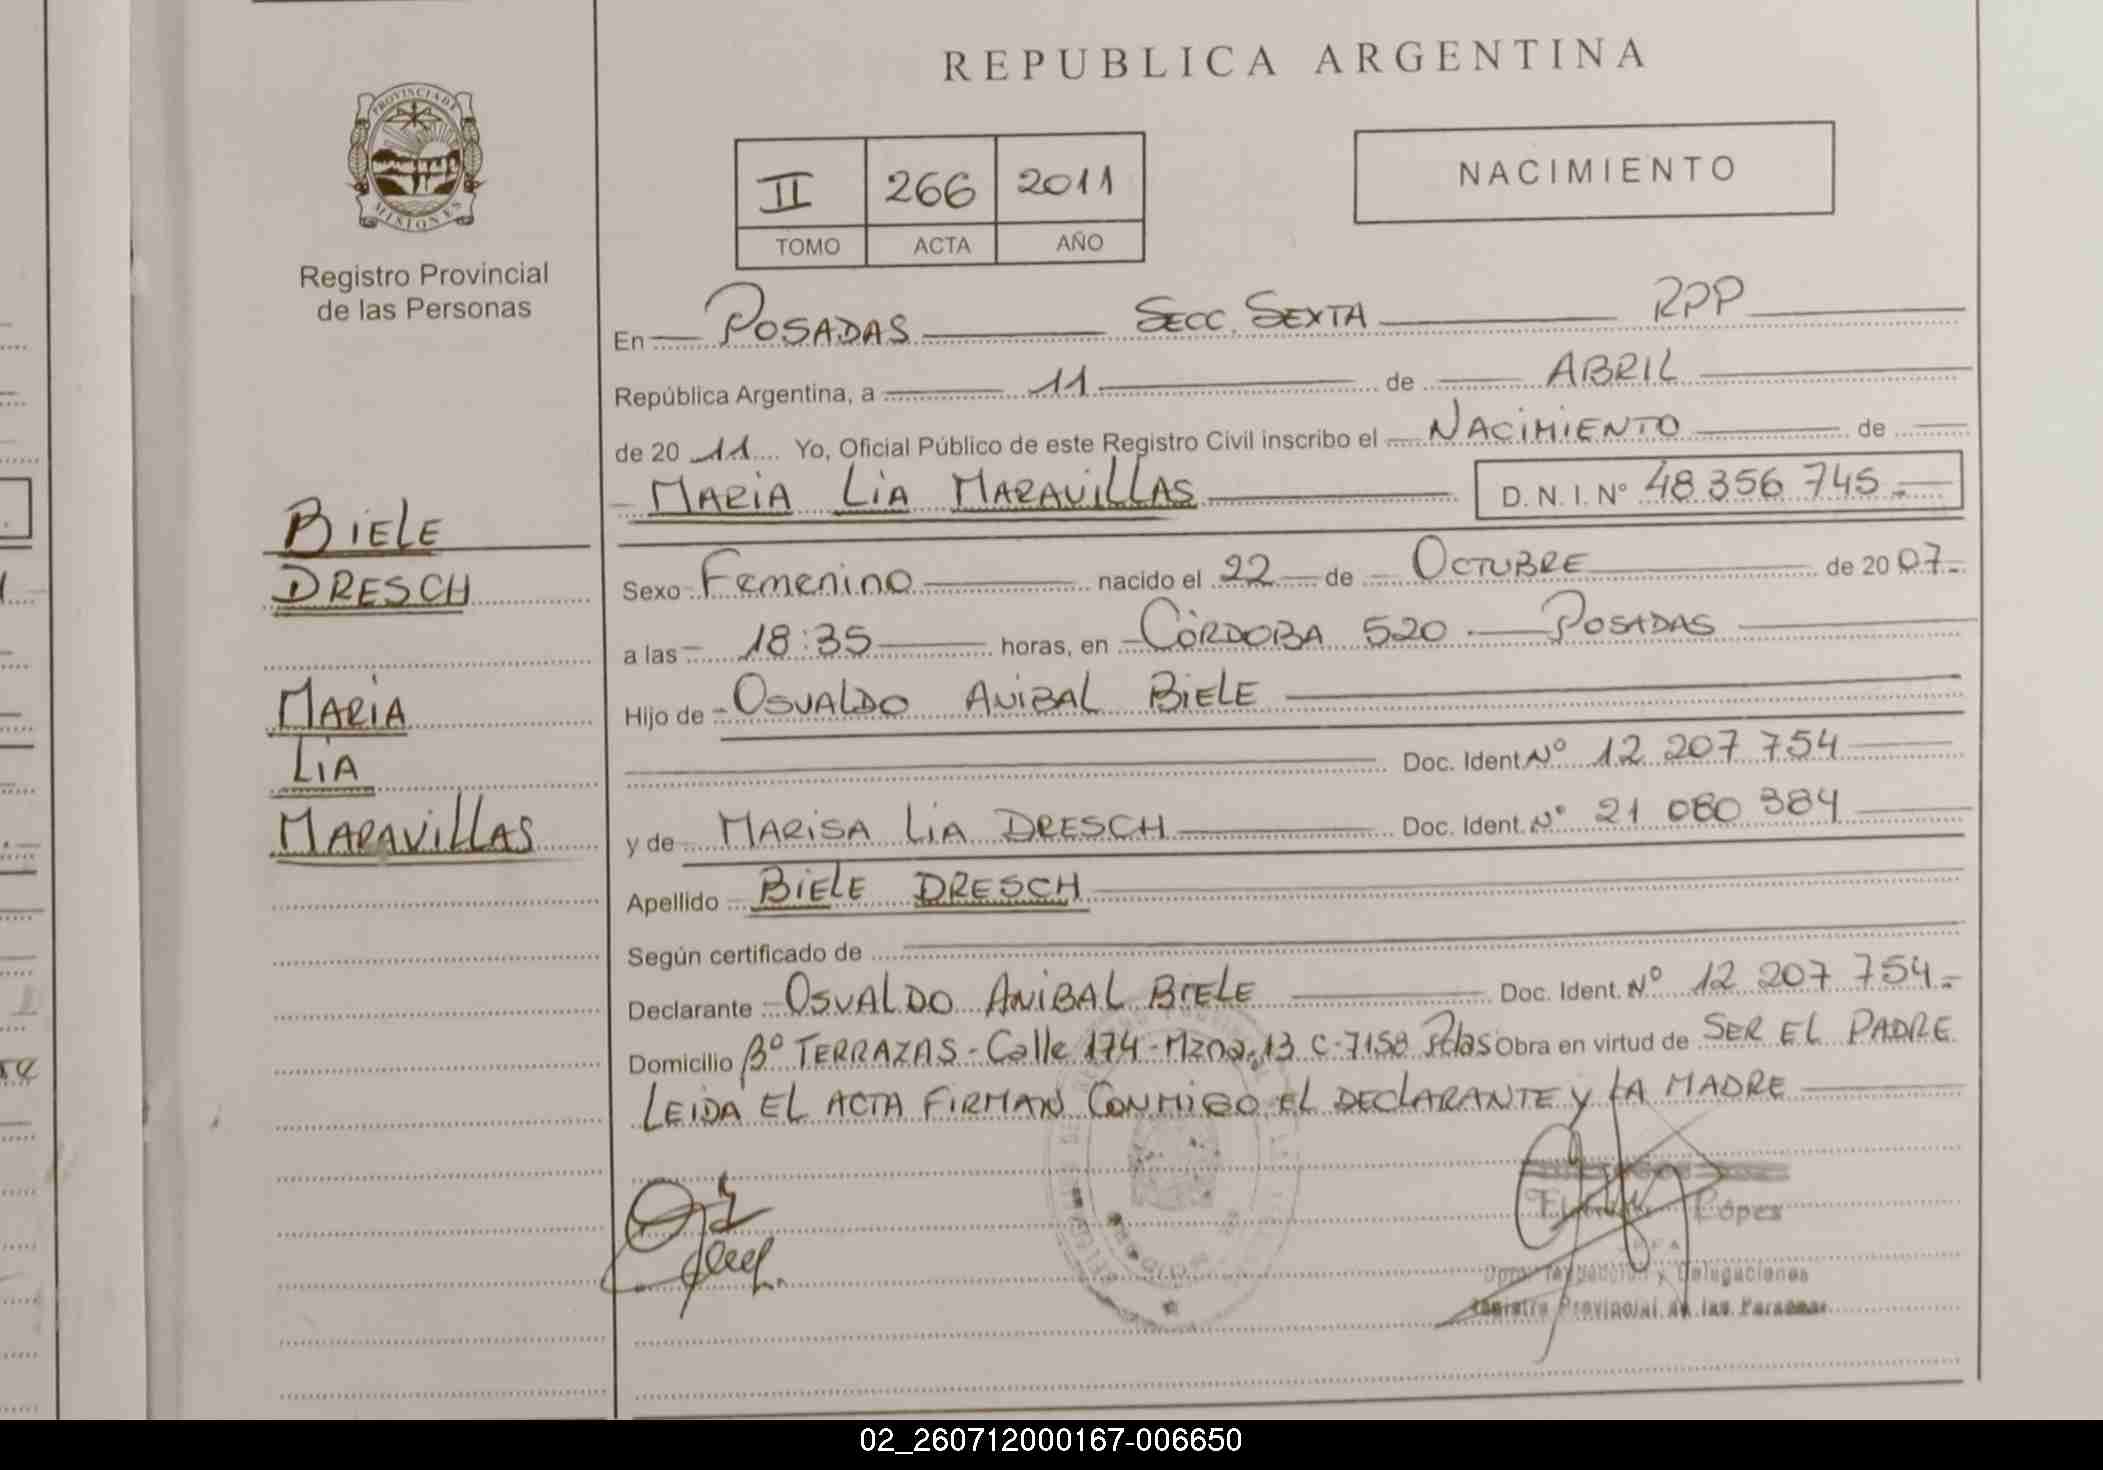 REPUBLICA ARGENTINA
PROVINCIA DE
MISIONES
Registro Provincial
de las Personas
II 266 2011
TOMO ACTA AÑO
NACIMIENTO
En POSADAS SECC. SEXTA RPP
República Argentina, a 11 de ABRIL
de 20 11 Yo, Oficial Público de este Registro Civil inscribo el NACIMIENTO de
MARIA LIA MARAVILLAS D.N.I. Nº 48 356 745.-
BIELE
DRESCH
MARIA
LIA
MARAVILLAS
Sexo Femenino nacido el 22 de OCTUBRE de 20 07.-
a las 18:35 horas, en CÓRDOBA 520 - POSADAS
Hijo de OSVALDO ANIBAL BIELE
Doc. Ident. Nº 12 207 754
y de MARISA LIA DRESCH Doc. Ident. Nº 21 080 384
Apellido BIELE DRESCH
Según certificado de
Declarante OSVALDO ANIBAL BIELE Doc. Ident. Nº 12 207 754.-
Domicilio Bº TERRAZAS - Calle 174 - Mzna. 13 C-7158 Pdas Obra en virtud de SER EL PADRE
LEIDA EL ACTA FIRMAN CONMIGO EL DECLARANTE Y LA MADRE
López
JEFA
Dpto. Inspección y Delegaciones
Registro Provincial de las Personas
02_260712000167-006650